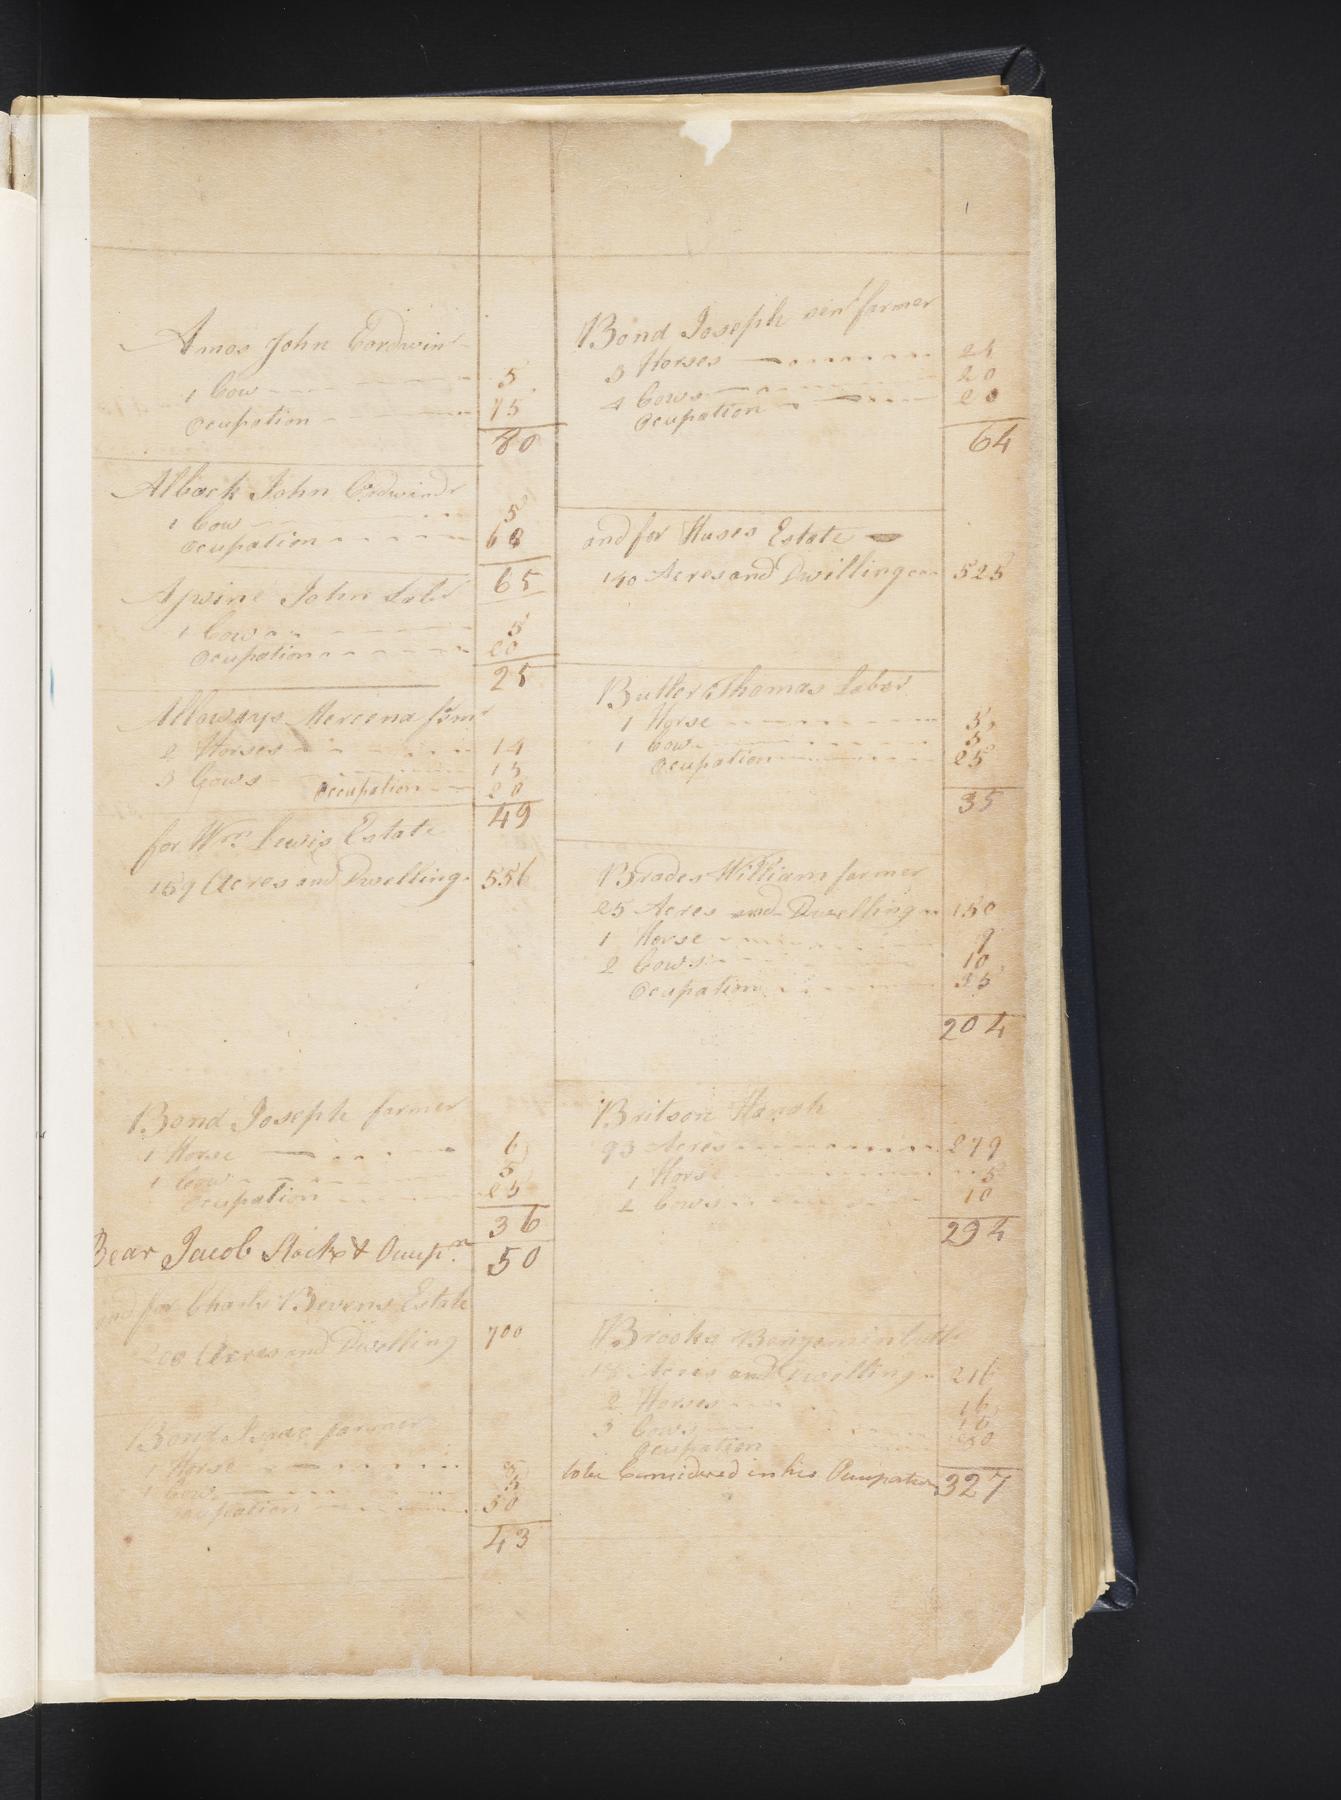 Amos John Cordwinr
1 Cow 5
Ocupation 75
80
Alback John Cordwindr
1 Cow 5
Ocupation 60
65
Apwine John Labr
1 Cow 5
Ocupation 20
25
Alloways Mercena farmr
2 Horses 14
3 Cows 15
Occupation 20
49
for Wm Lewis Estate
159 Acres and Dwelling 556
Bond Joseph farmer
1 Horse 6
1 Cow 5
Ocupation 25
36
Bear Jacob Stock & Ocupn 50
and for Charls Bevens Estate
200 Acres and Dwelling 700
Bond Isaac farmer
1 Horse
1 Cow 5
Ocupation
43
Bond Joseph senr farmer
3 Horses 24
4 Cows 20
Ocupation 20
64
and for Huses Estate
140 Acres and Dwilling 525
Butler Thomas Labor
1 Horse 5
1 Cow 5
Ocupation 25
35
Brades William farmer
25 Acres and Dwelling 150
1 Horse 9
2 Cows 10
Ocupation 35
204
Britson Hanah
93 Acres 279
1 Horse 5
2 Cows 10
294
Brooks Benjamin
Acres and Dwilling 216
2 Horses 16
3 Cows 15
Ocupation
to be Considered in his Ocupation 327